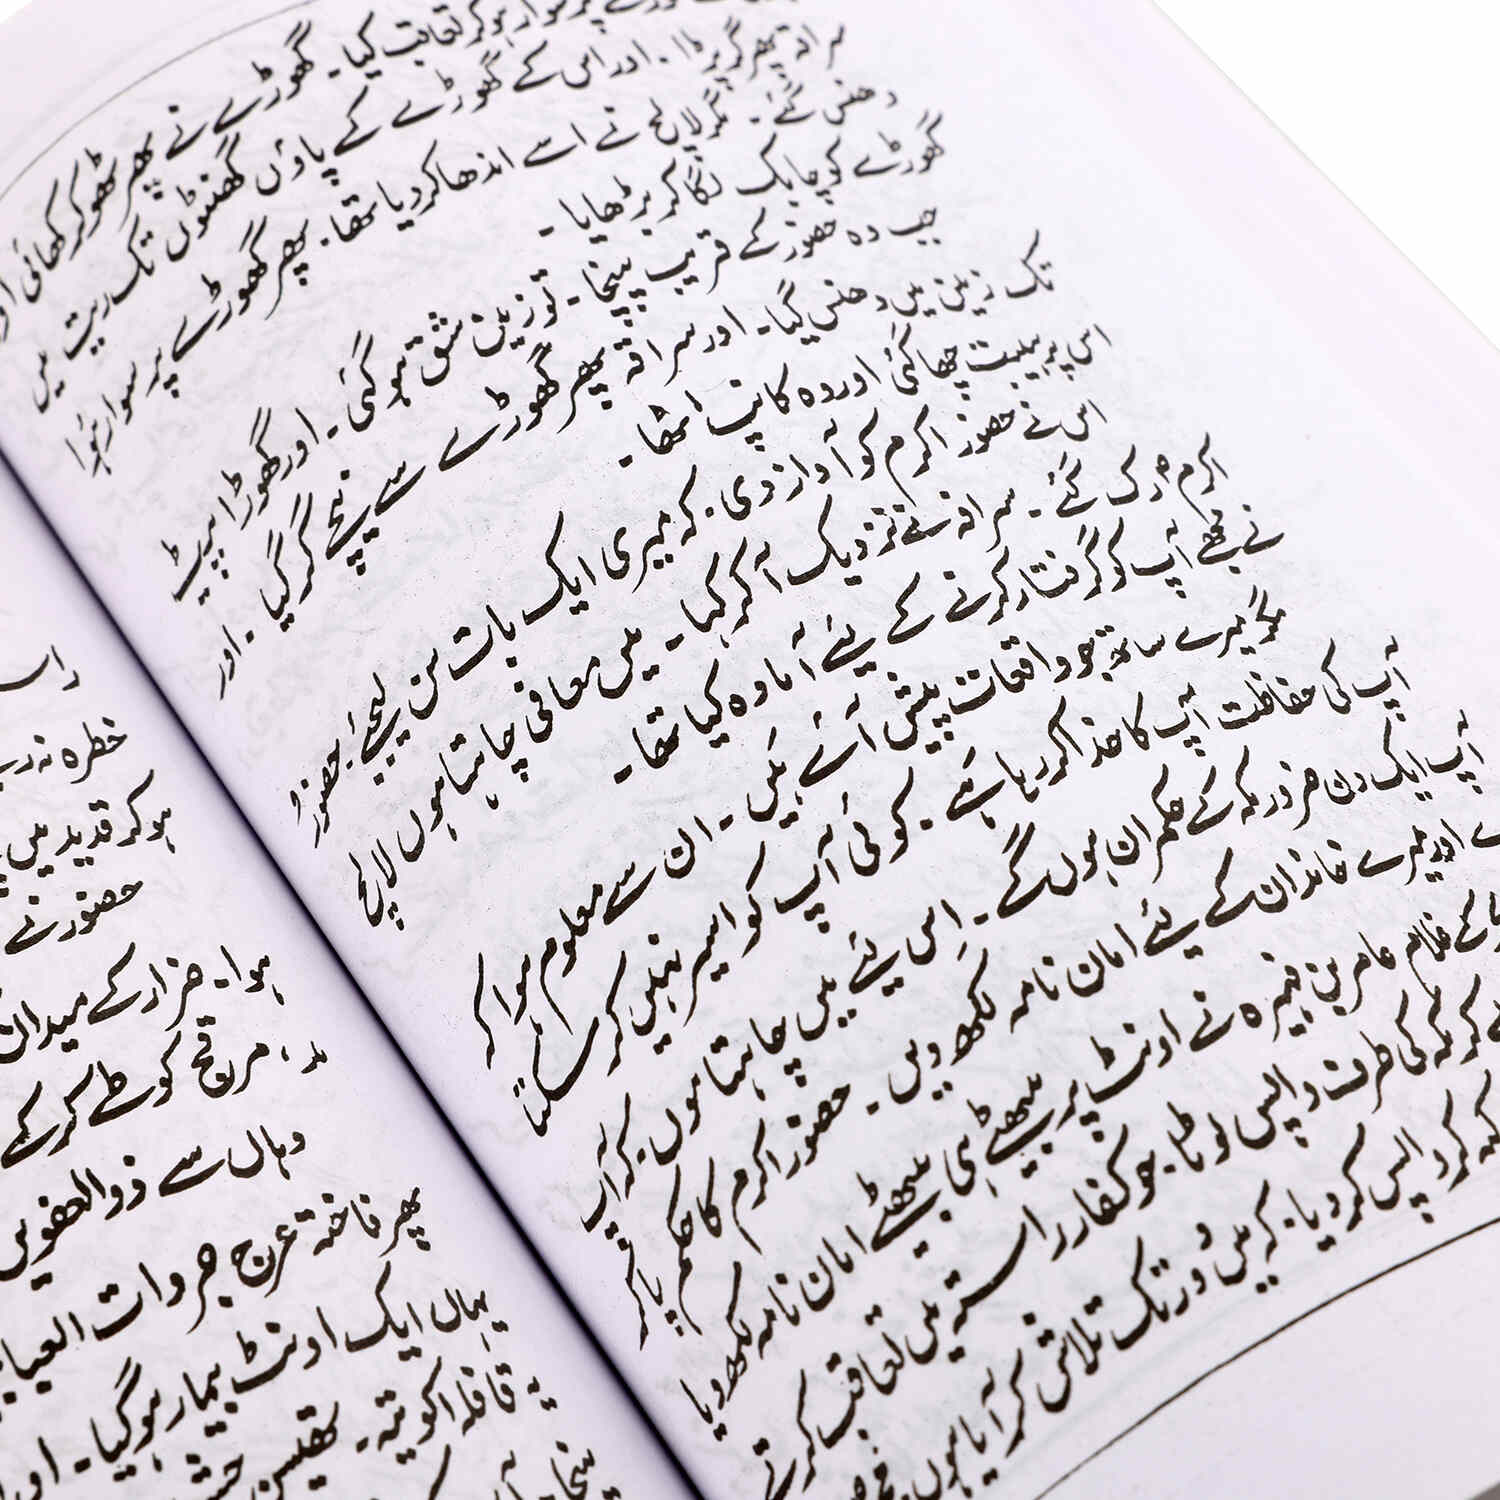 سوار ہو کر تعاقب کیا۔ گھوڑے نے پھر ٹھوکر کھائی اور
سراقہ پھر گر پڑا۔ اور اس کے گھوڑے کے پاؤں گھٹنوں تک ریت میں
دھنس گئے۔ مگر لالچ نے اسے اندھا کر دیا تھا۔ پھر گھوڑے پر سوار ہوا
گھوڑے کو چابک لگا کر بڑھایا۔
جب وہ حضور کے قریب پہنچا۔ تو زمین شق ہو گئی۔ اور گھوڑا پیٹ
تک زمین میں دھنس گیا۔ اور سراقہ پھر گھوڑے سے نیچے گر گیا۔ اور
اس پر ہیبت چھا گئی اور وہ کانپ اٹھا۔
اس نے حضور اکرم کو آواز دی۔ کہ میری ایک بات سن لیجئے۔ حضور
اکرم رک گئے۔ سراقہ نے نزدیک آ کر کہا۔ میں معافی چاہتا ہوں لالچ
نے مجھے آپ کو گرفتار کرنے کے لئے آمادہ کیا تھا۔
مگر میرے ساتھ جو واقعات پیش آئے ہیں۔ ان سے معلوم ہوا کہ
آپ کی حفاظت آپ کا خدا کر رہا ہے۔ کوئی آپ کو اسیر نہیں کر سکتا
آپ ایک دن ضرور مکہ کے حکمران ہوں گے۔ اس لئے میں چاہتا ہوں۔ کہ آپ
اور میرے خاندان کے لئے امان نامہ لکھ دیں۔ حضور اکرم کا حکم پا کر
کے غلام عامر بن فہیرہ نے اونٹ پر بیٹھے ہی بیٹھے امان نامہ لکھ دیا
کر مکہ کی طرف واپس لوٹا۔ جو کفار راستہ میں تعاقب کرتے
کہہ کر واپس کر دیا۔ کہ میں دور تک تلاش کر آیا ہوں
خطرہ نہ
ہو کر قدید میں
حضور نے
ہوا۔ ضرار کے میدان
مرجح کو طے کر کے
وہاں سے ذوالعضوین
پھر فاختہ عرج
یہاں ایک اونٹ بیمار ہو گیا۔ اور
یہ قافلہ